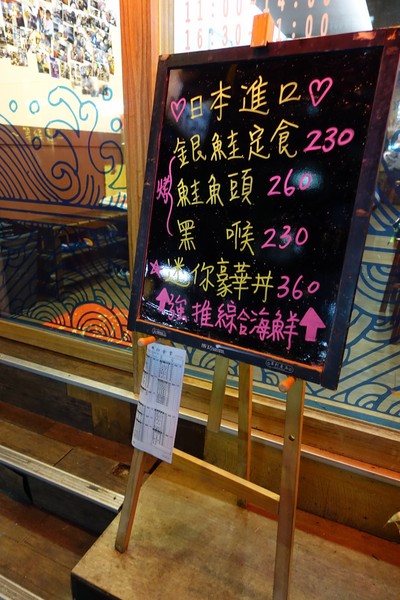 11:00-14:00
16:30-21:00
♡日本進口♡
銀鮭魚定食230
烤
鮭魚頭 260
黑 喉 230
☆迷你豪華丼360
↑強推綜合海鮮↑